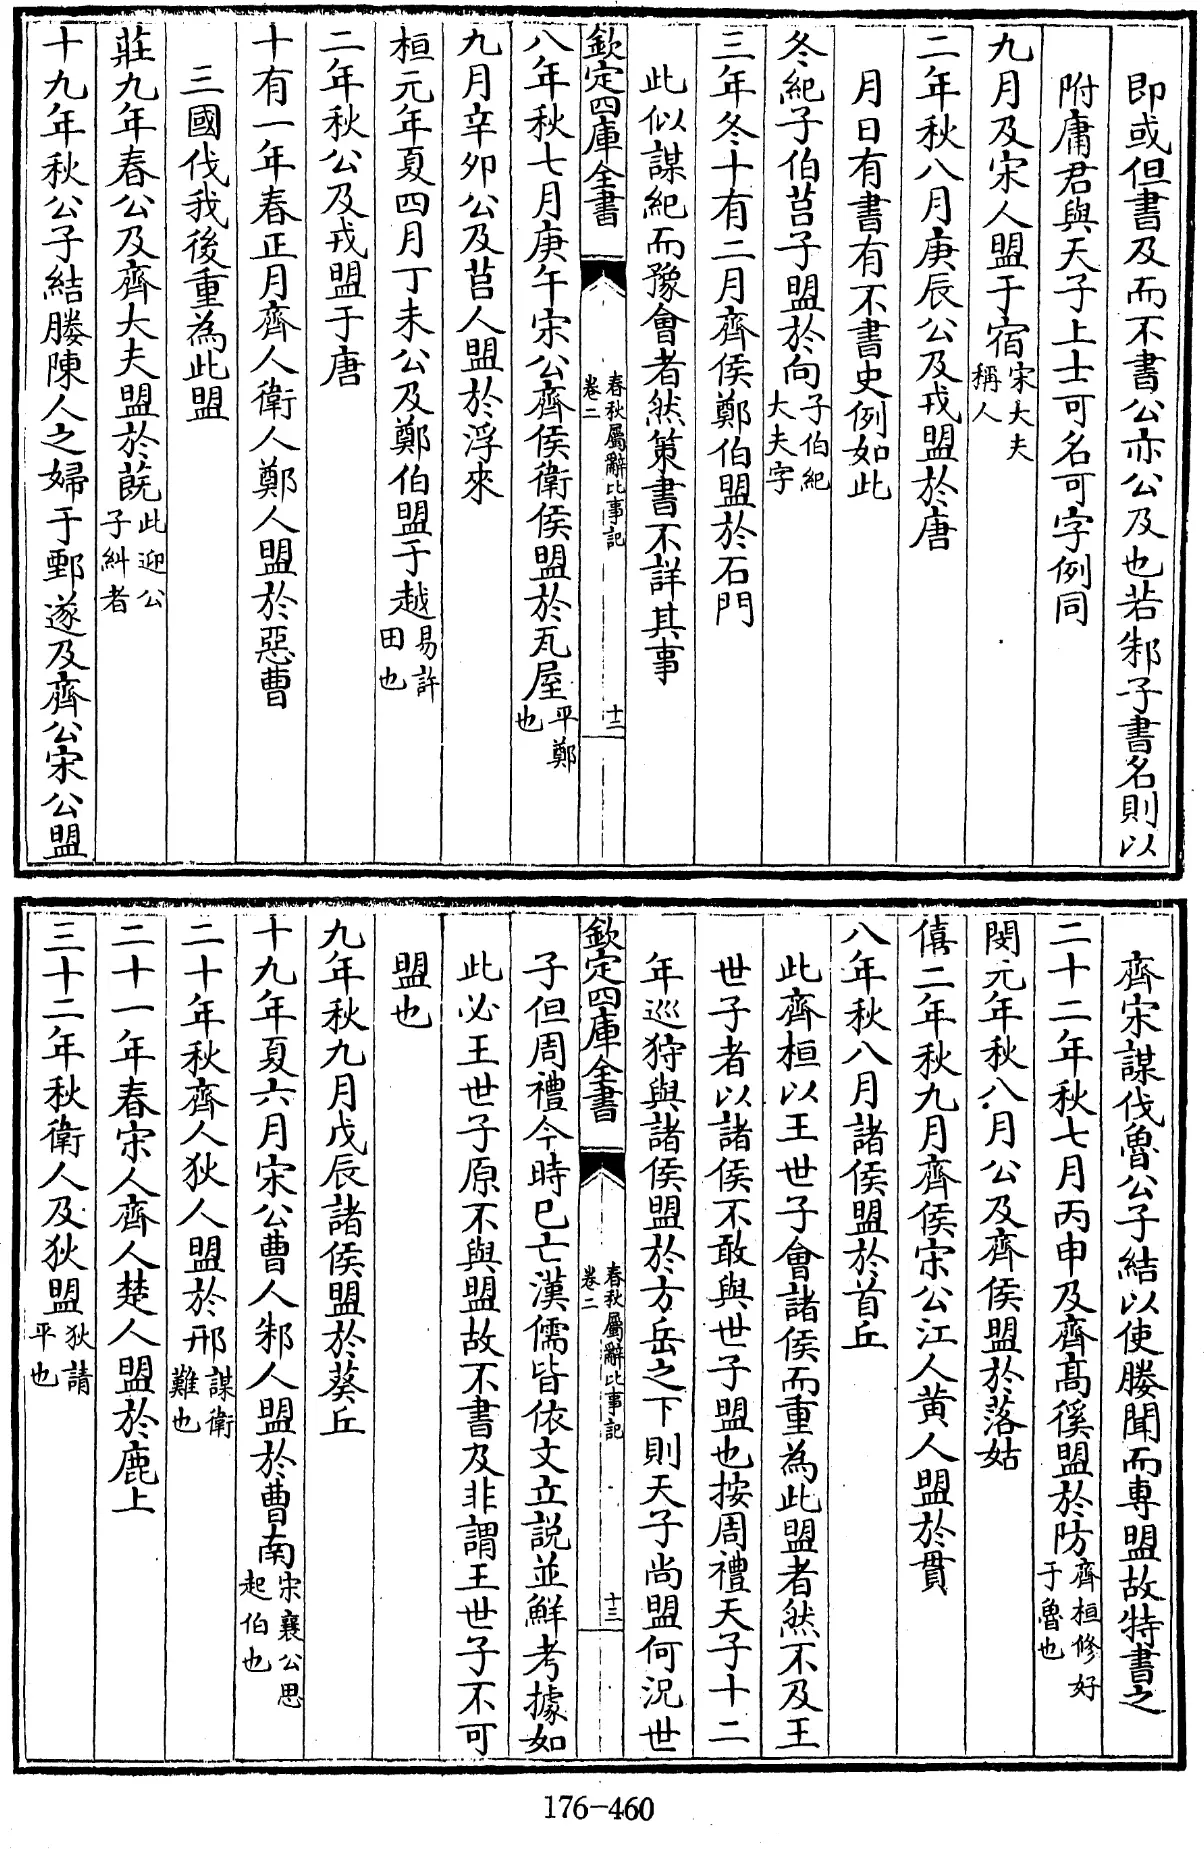 即或但書及而不書公亦公及也若邾子書名則以
附庸君與天子上士可名可字例同
九月及宋人盟于宿宋大夫稱人
二年秋八月庚辰公及戎盟於唐
月日有書有不書史例如此
冬紀子伯莒子盟於向子伯紀大夫字
三年冬十有二月齊侯鄭伯盟於石門
此似謀紀而豫會者然策書不詳其事
欽定四庫全書
春秋屬辭比事記
卷二
十二
八年秋七月庚午宋公齊侯衛侯盟於瓦屋平鄭也
九月辛卯公及莒人盟於浮來
桓元年夏四月丁未公及鄭伯盟于越易許田也
二年秋公及戎盟于唐
十有一年春正月齊人衛人鄭人盟於惡曹
三國伐我後重為此盟
莊九年春公及齊大夫盟於蔇此迎公子糾者
十九年秋公子結媵陳人之婦于鄄遂及齊公宋公盟
齊宋謀伐魯公子結以使媵聞而專盟故特書之
二十二年秋七月丙申及齊高徯盟於防齊桓修好于魯也
閔元年秋八月公及齊侯盟於落姑
僖二年秋九月齊侯宋公江人黄人盟於貫
八年秋八月諸侯盟於首丘
此齊桓以王世子會諸侯而重為此盟者然不及王
世子者以諸侯不敢與世子盟也按周禮天子十二
年巡狩與諸侯盟於方岳之下則天子尚盟何況世
欽定四庫全書
春秋屬辭比事記
卷二
十三
子但周禮今時已亡漢儒皆依文立説並鮮考據如
此必王世子原不與盟故不書及非謂王世子不可
盟也
九年秋九月戊辰諸侯盟於葵丘
十九年夏六月宋公曹人邾人盟於曹南宋襄公思起伯也
二十年秋齊人狄人盟於邢謀衛難也
二十一年春宋人齊人楚人盟於鹿上
三十二年秋衛人及狄盟狄請平也
176-460